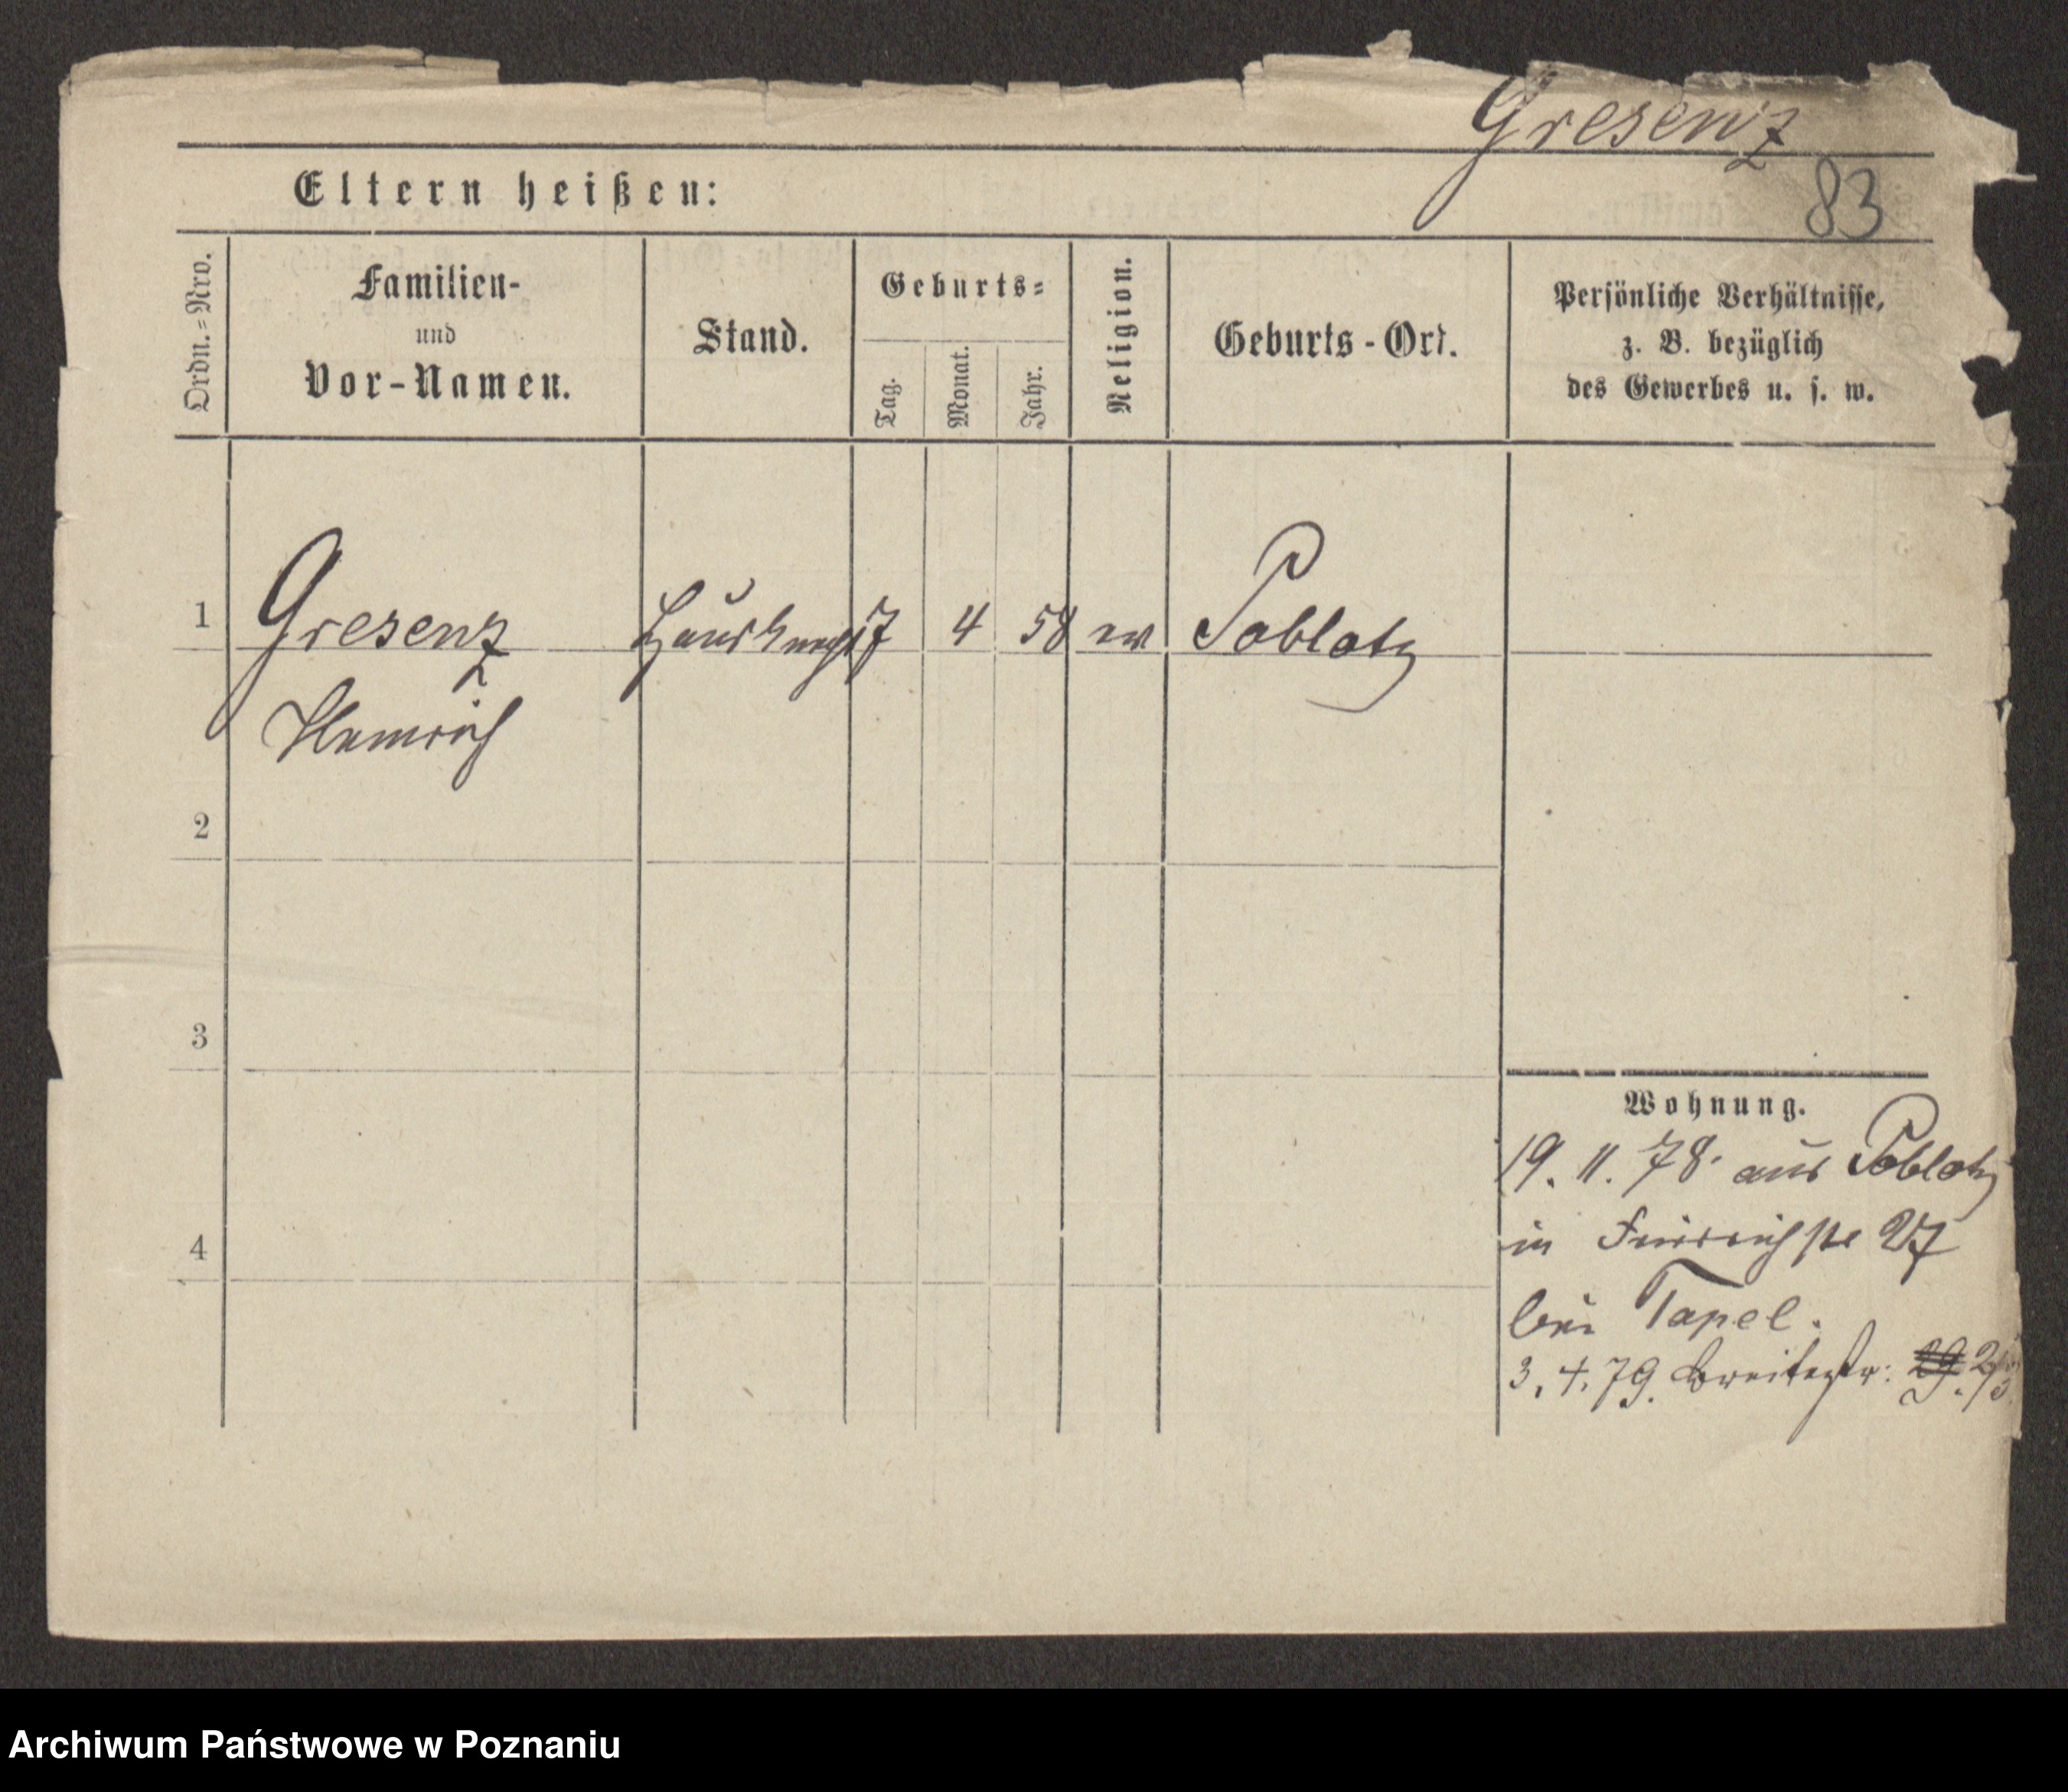 Gresenz
83
Eltern heißen:
Ordn.=Nro.
Familien-
und
Vor-Namen.
Stand.
Geburts=
Tag.
Monat.
Jahr.
Religion.
Geburts-Ort.
Persönliche Verhältnisse,
z. B. bezüglich
des Gewerbes u. s. w.
1 Gresenz Hausknecht 17 4 58 ev Poblotz
Heinrich
2
3
4
Wohnung.
19. 11. 78. aus Poblotz
in 27
bei Tapel.
3. 4. 79. Breitestr: 29.
Archiwum Państwowe w Poznaniu